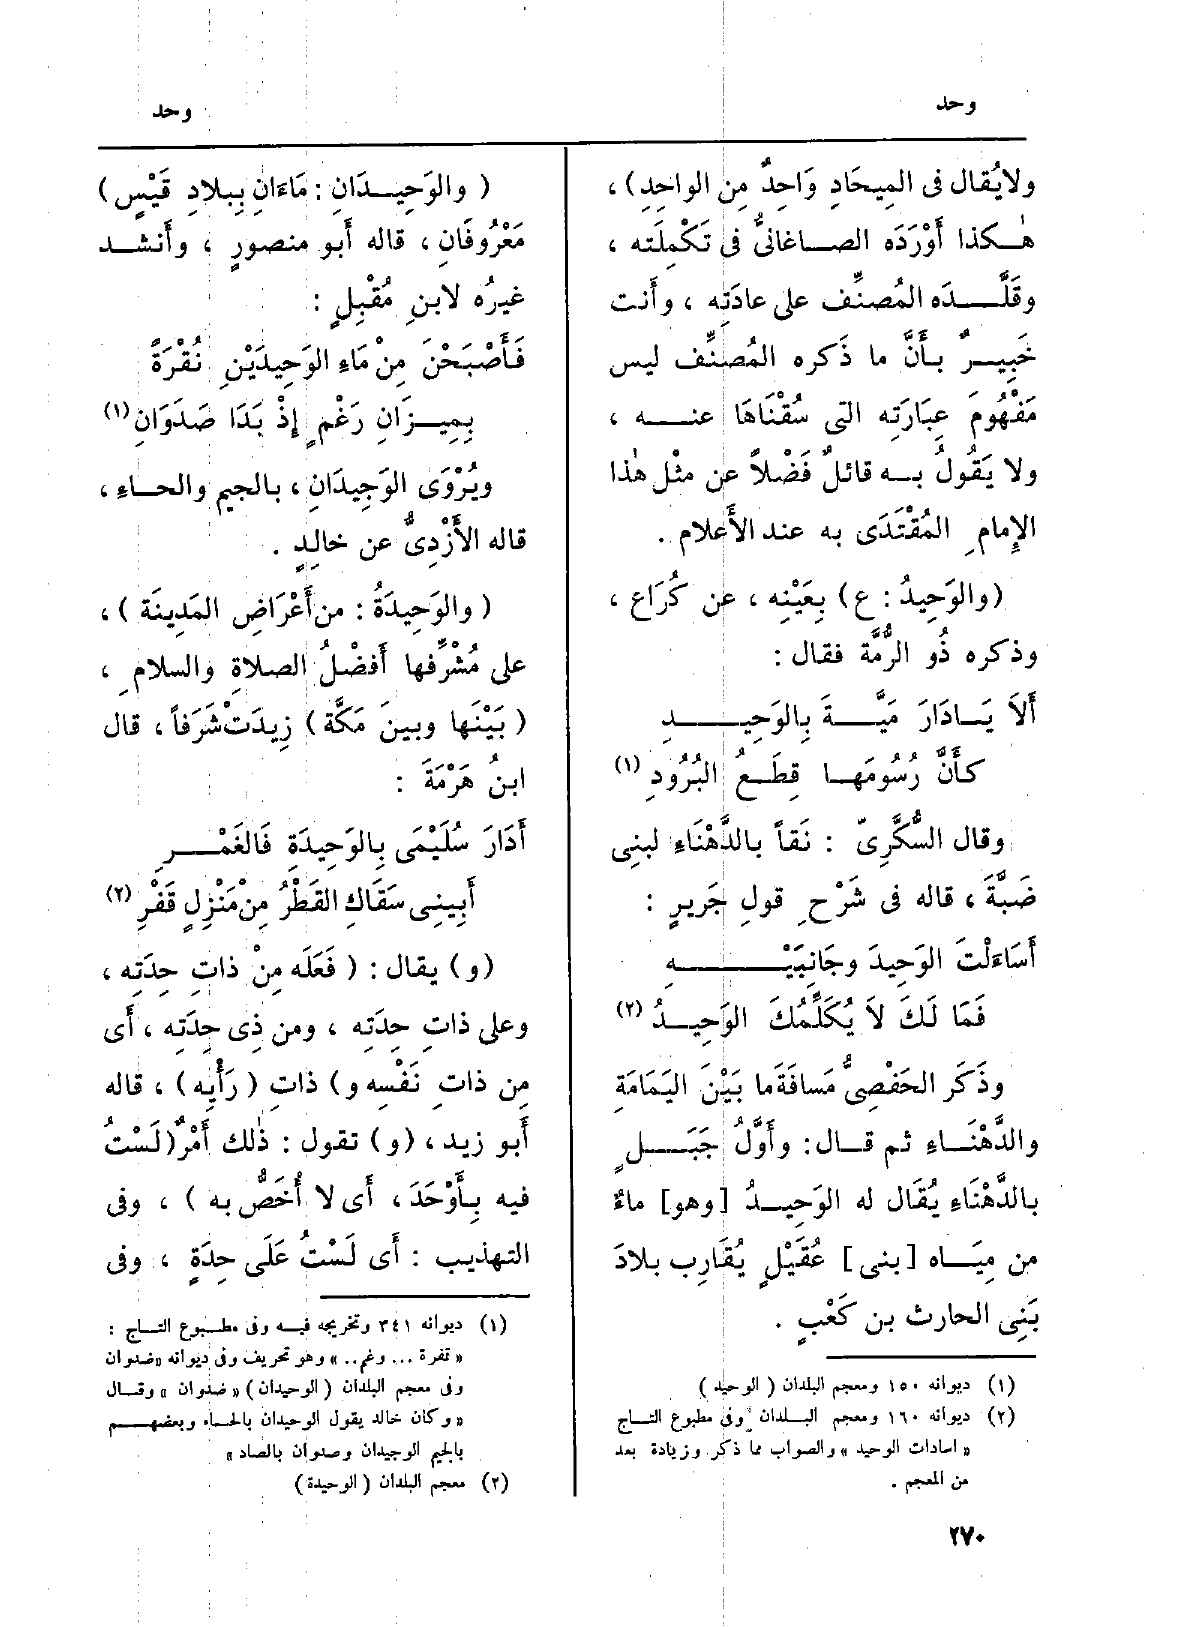 وحد
ولايُقال فى المِيحَادِ وَاحِدٌ مِن الواحِدِ) ،
هٰكذا أَوْرَدَه الصاغانىُّ فى تَكْمِلَته ،
وقَلَّدَه المُصنِّف على عادَتِه ، وأَنت
خَبِيرٌ بأَنَّ ما ذَكره المُصنِّف ليس
مَفْهُومَ عِبَارَتِه التى سُقْنَاهَا عنه ،
ولا يَقُولُ به قائلٌ فَضْلاً عن مثْل هٰذا
الإِمامِ المُقْتَدَى به عند الأَعلام .
(والوَحِيدُ : ع) بِعَيْنِه ، عن كُرَاع ،
وذكره ذُو الرُّمَّة فقال :
أَلاَ يَادَارَ مَيَّةَ بِالوَحِيدِ
كأَنَّ رُسُومَها قِطَعُ البُرُودِ (١)
وقال السُّكَّرِىّ : نَقاً بالدَّهْنَاءِ لبنى
ضَبَّةَ ، قاله فى شَرْحِ قولِ جَريرٍ :
أَسَاءَلْتَ الوَحِيدَ وجَانِبَيْهِ
فَمَا لَكَ لاَ يُكَلِّمُكَ الوَحِيدُ (٢)
وذَكَر الحَفْصِىُّ مَسافَةَما بَيْنَ اليَمَامَةِ
والدَّهْنَاءِ ثم قال : وأَوَّلُ جَبَلٍ
بالدَّهْنَاءِ يُقَال له الوَحِيدُ [وهو] ماءٌ
من مِيَاه [بنى] عُقَيْلٍ يُقَارِب بلادَ
بَنِى الحارث بن كَعْبٍ .
(١) ديوانه ١٥٠ ومعجم البلدان ( الوحيد )
(٢) ديوانه ١٦٠ ومعجم البلدان وفى مطبوع التاج
« اسادات الوحيد » والصواب مما ذكر وزيادة بعد
من المعجم .
٢٧٠
وحد
( والوَحِيدَانِ : مَاءَانِ بِبِلادِ قَيْسٍ )
مَعْرُوفَانِ ، قاله أَبو منصورٍ ، وأَنشد
غيرُه لابنِ مُقْبِلٍ :
فَأَصْبَحْنَ مِنْ مَاءِ الوَحِيدَيْنِ نُقْرَةً
بِمِيزَانِ رَغْمٍ إِذْ بَدَا صَدَوَانِ (١)
ويُرْوَى الوَجِيدَانِ ، بالجيم والحاءِ ،
قاله الأَزْدِىُّ عن خالِدٍ .
( والوَحِيدَةُ : من أَعْرَاضِ المَدِينَة ) ،
على مُشْرِّفها أَفضْلُ الصلاةِ والسلامِ ،
( بَيْنَها وبينَ مَكَّة ) زِيدَتْ شَرَفاً ، قال
ابنُ هَرْمَةَ :
أَدَارَ سُلَيْمَى بِالوَحِيدَةِ فَالغَمْرِ
أَبِينِى سَقَاكِ القَطْرُ مِنْ مَنْزِلٍ قَفْرِ (٢)
(و) يقال : ( فَعَلَه مِنْ ذاتِ حِدَتِه ،
وعلى ذاتِ حِدَتِه ، ومن ذِى حِدَتِه ، أَى
مِن ذاتِ نَفْسِه و ) ذاتِ ( رَأْيِه ) ، قاله
أَبو زيد ، (و) تقول : ذٰلك أَمْرٌ ( لَسْتُ
فيه بِأَوْحَدَ ، أَى لا أُخَصُّ به ) ، وفى
التهذيب : أَى لَسْتُ عَلَى حِدَةٍ ، وفى
(١) ديوانه ٣٤١ وتخريجه فيه وفى مطبوع التاج :
« تفرة ... وغم.. » وهو تحريف وفى ديوانه «ضدوان
وفى معجم البلدان (الوحيدان) « ضدوان » وقال
« وكان خالد يقول الوحيدان بالحاء وبعضهم
بالجيم الوجيدان وصدوان بالصاد »
(٢) معجم البلدان (الوحيدة)